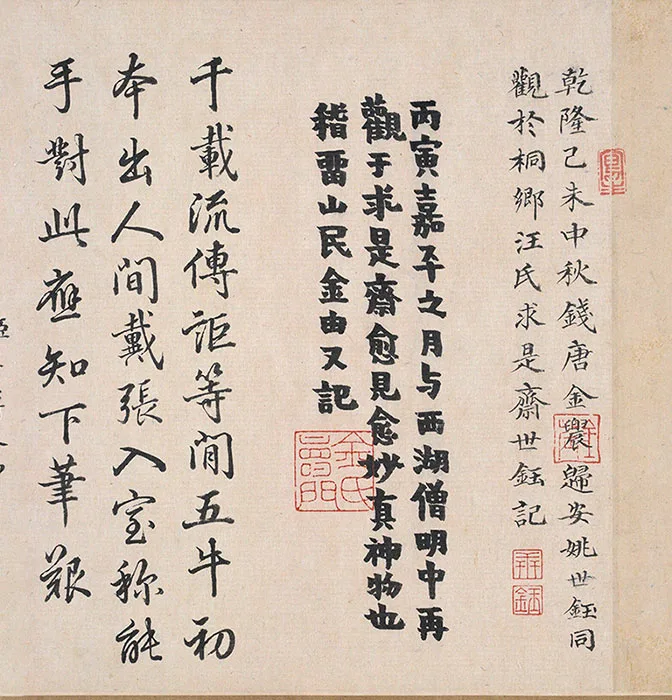 乾隆己未中秋錢唐金農歸安姚世鈺同
觀於桐鄉汪氏求是齋世鈺記
丙寅嘉平之月与西湖僧明中再
觀于求是齋愈見愈妙真神物也
稽畱山民金由又記
金氏壽門
千載流傳詎等閒五牛初
本出人間戴張入室称能
手對此應知下筆艱